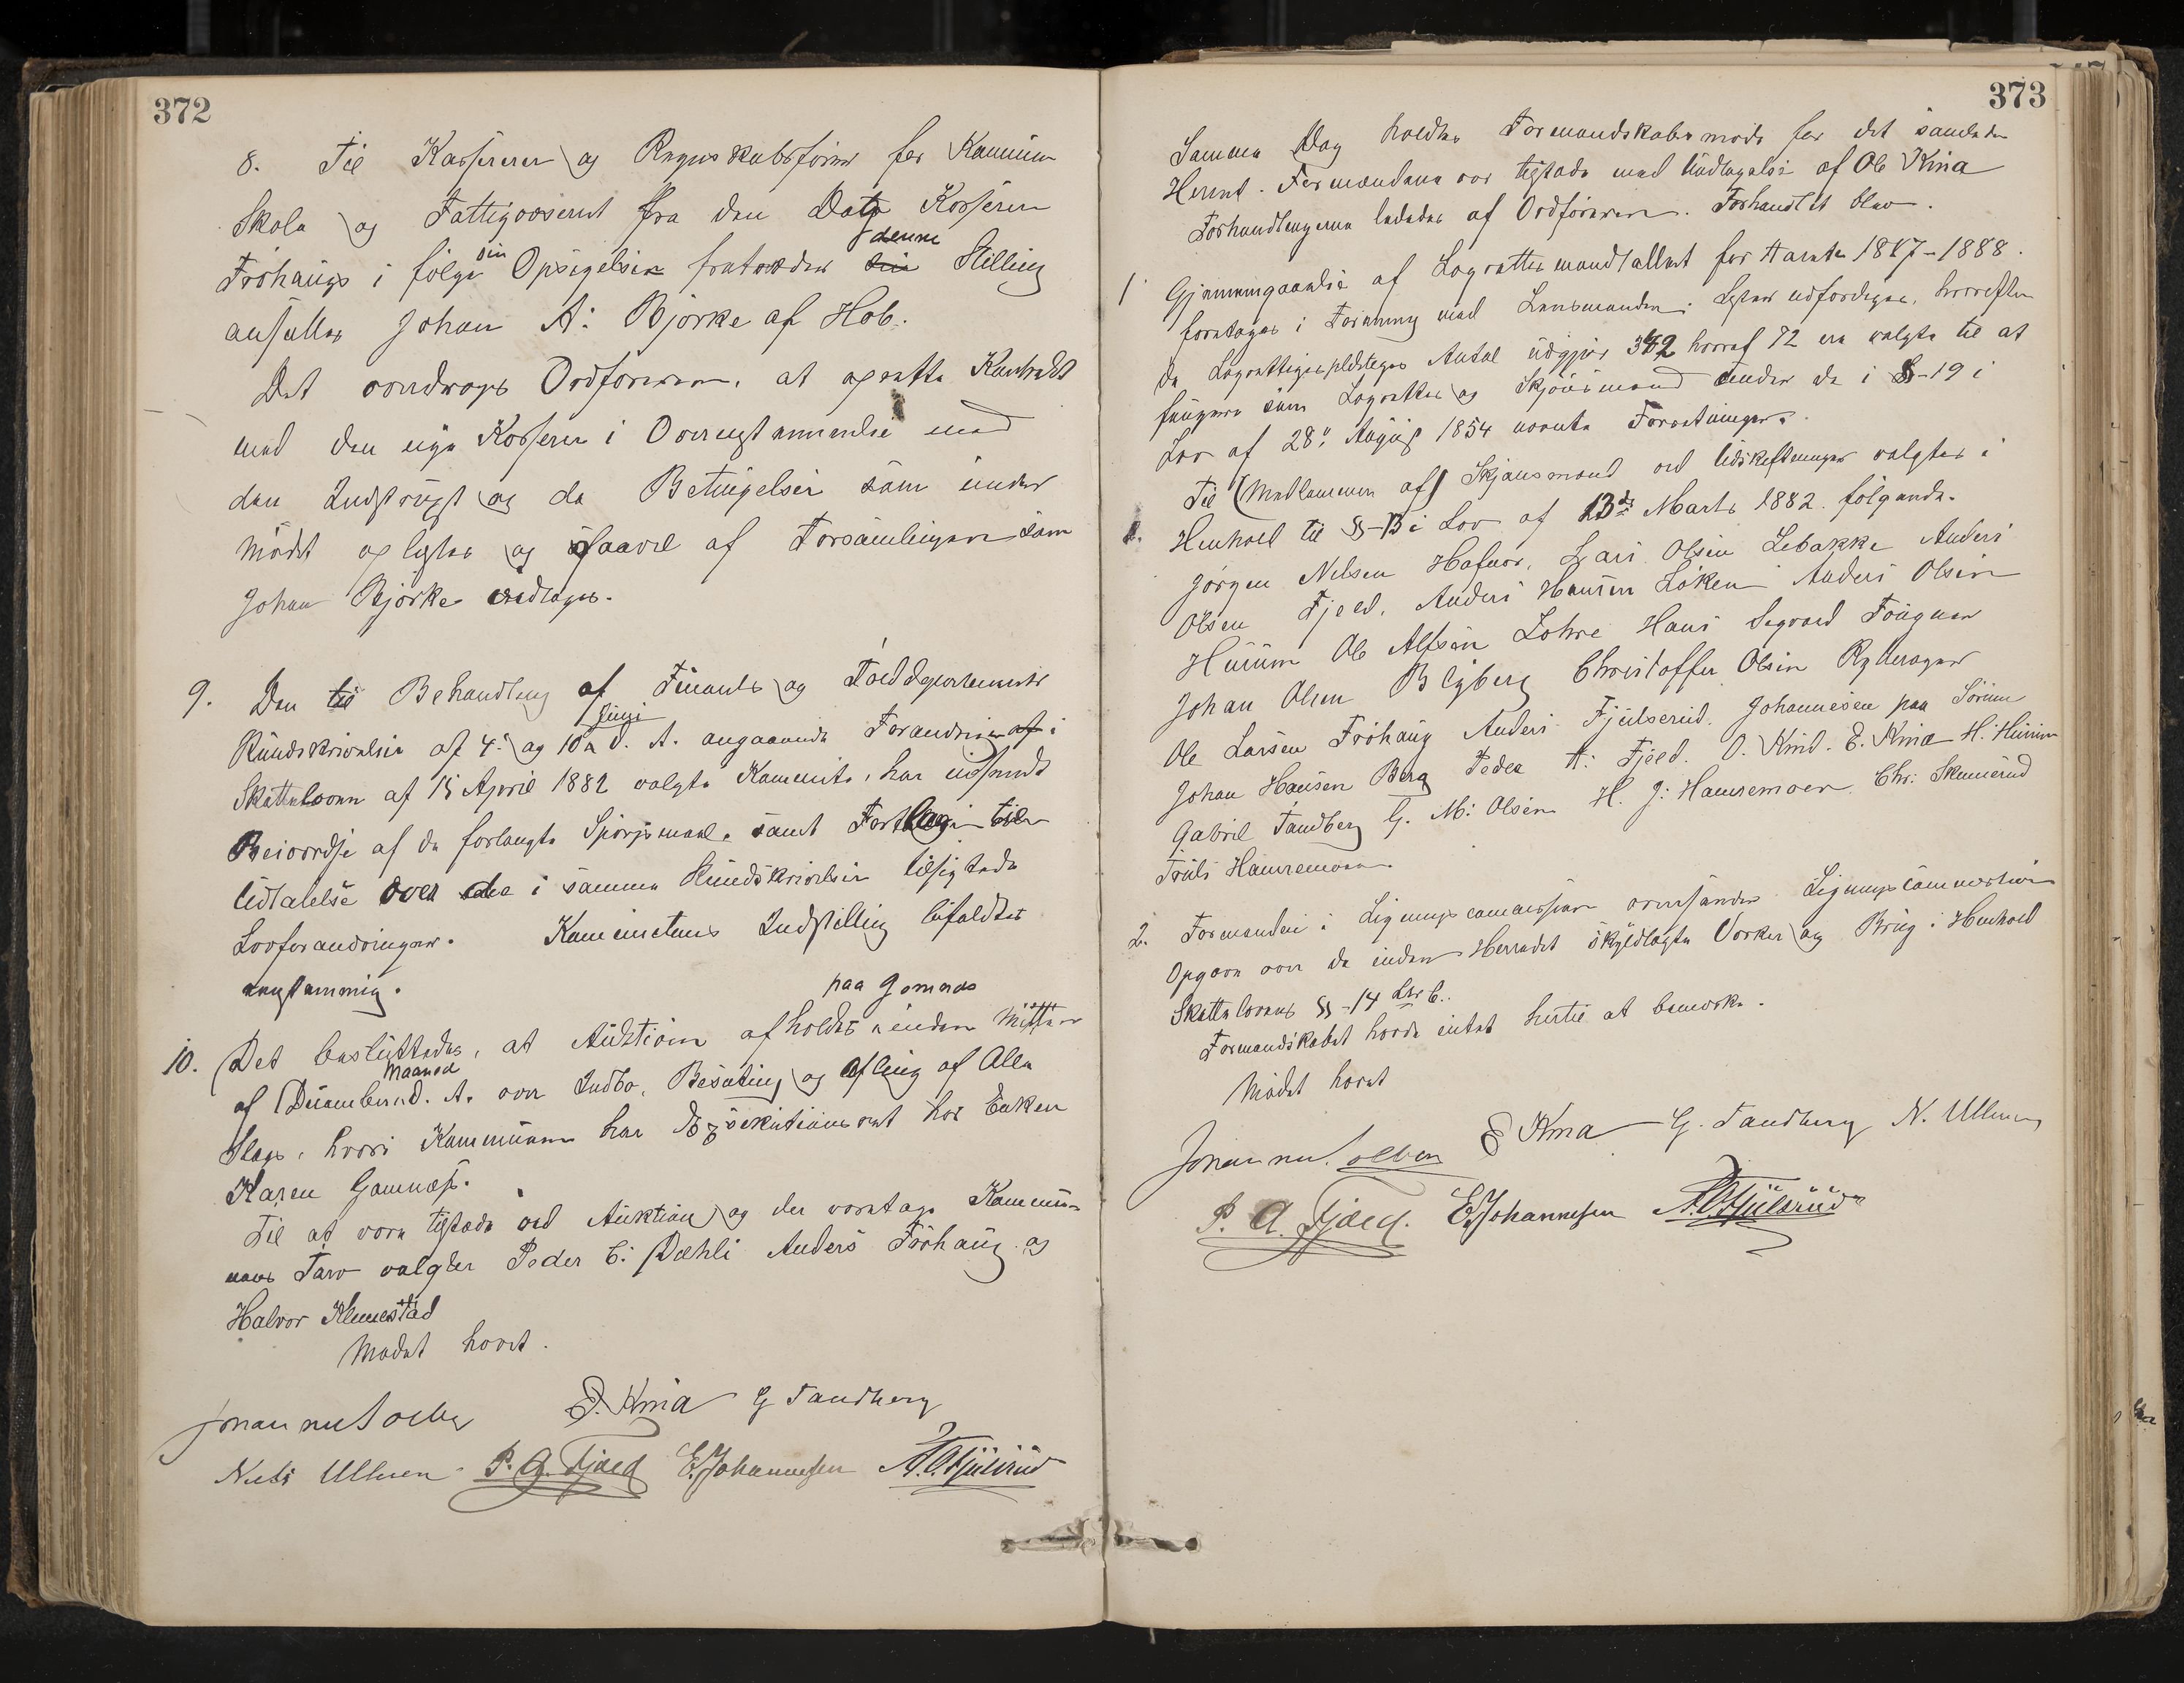 372
8. Til Kasserer og Regnskabsfører for Kommune
Skole og Fattigvæsenet fra den Dag Kasserer
Fröhaugs i følge sin Opsigelse fratræder denne Stilling
ansættes Johan A: Bjørke af Hob.
Det overdrages Ordføreren, at oprette Kontrakt
med den nye Kasserer i Overenstemmelse med
den Instrux og de Betingelser som under
Mødet oplystes og saavel af Forsamlingen som
Johan Bjørke vedtoges.
9. Den til Behandling af Finants og Tolddepartementets
Rundskrivelse af 4: og 10de Juni d. A. angaaende Forandring af i
Skatteloven af 15 April 1882 valgte Kommite, har
af de forlangte Spørgsmaal, samt
Udtalelse over de i samme Rundskrivelse tilsigtede
Lovforandringer. Kommiteens Indstilling bifaldtes
enstemmig.
paa Gamnæs
10. Det besluttedes, at Auktion afholdes inden Midten
af December Maaned d. A. over Indbo, Besætning og Afling af Alle
Slags, hvori Kommunen har Exsekutionsret hos Enken
Karen Gamnæs.
Til at være tilstede ved Auktion og der varetage Kommu-
nens Tarv valgtes Peder C: Dæhli Anders Fröhaug og
Halvor Klemestad
Mødet hævet.
E. Kina G Tandberg
Niels Ullern P. A. Fjæld E. Johannessen A. O. Fjulsrud
373
Samme Dag holdtes Formandskabsmøde for det samlede
Herred. Formændene var tilstede med Undtagelse af Ole Kina
Forhandlingerne lededes af Ordføreren. Forhandlet blev.
1 Gjennemgaaelse af Lagrettesmandtallet for Aarene 1887-1888.
foretages i Forening med Lensmanden: Lysten udfærdiges, hvorefter
de Lagrettespligtiges Antal udgjør 342 hvoraf 72 ere valgte til at
fungere som Lagrettes og Skjønsmænd under de i § - 19 i
Lov af 28: August 1854 nævnte Forretninger.
Til Medlemmer af Skjønsmænd ved Udskiftninger valgtes i
Henhold til § - 13 i Lov af 13de Marts 1882. følgende.
Jørgen Nilsen Hafnor, Lars Olsen Lebakke Anders
Olsen Fjeld, Anders Hansen Løken Anders Olsen
Hurum Ole Alfsen Lohre Hans Segvard Fougner
Johan Olsen Blyberg Christoffer Olsen Ryterager
Ole Larsen Fröhaug Anders Fjulserud. Johannesen paa Sörum
Johan Hansen Berg Peder A: Fjeld. O. Kind. E. Kina H. Hurum
Gabriel Tandberg G. M: Olsen H. J: Hamremoen. Chr: Skinnerud
Truls Hamremoen.
2. Formanden i Ligningscommissionen oversender Ligningscommissionens
Opgave over de inden Herredet skyldlagte Værker og Brug i Henhold
Skattelovens § - 14 Litr b..
Formandskabet havde intet hertil at bemærke.
Mødet hævet
E Kina G. Tandberg N. Ullern
P. A. Fjæld. E. Johannessen A. O. Fjulsrud